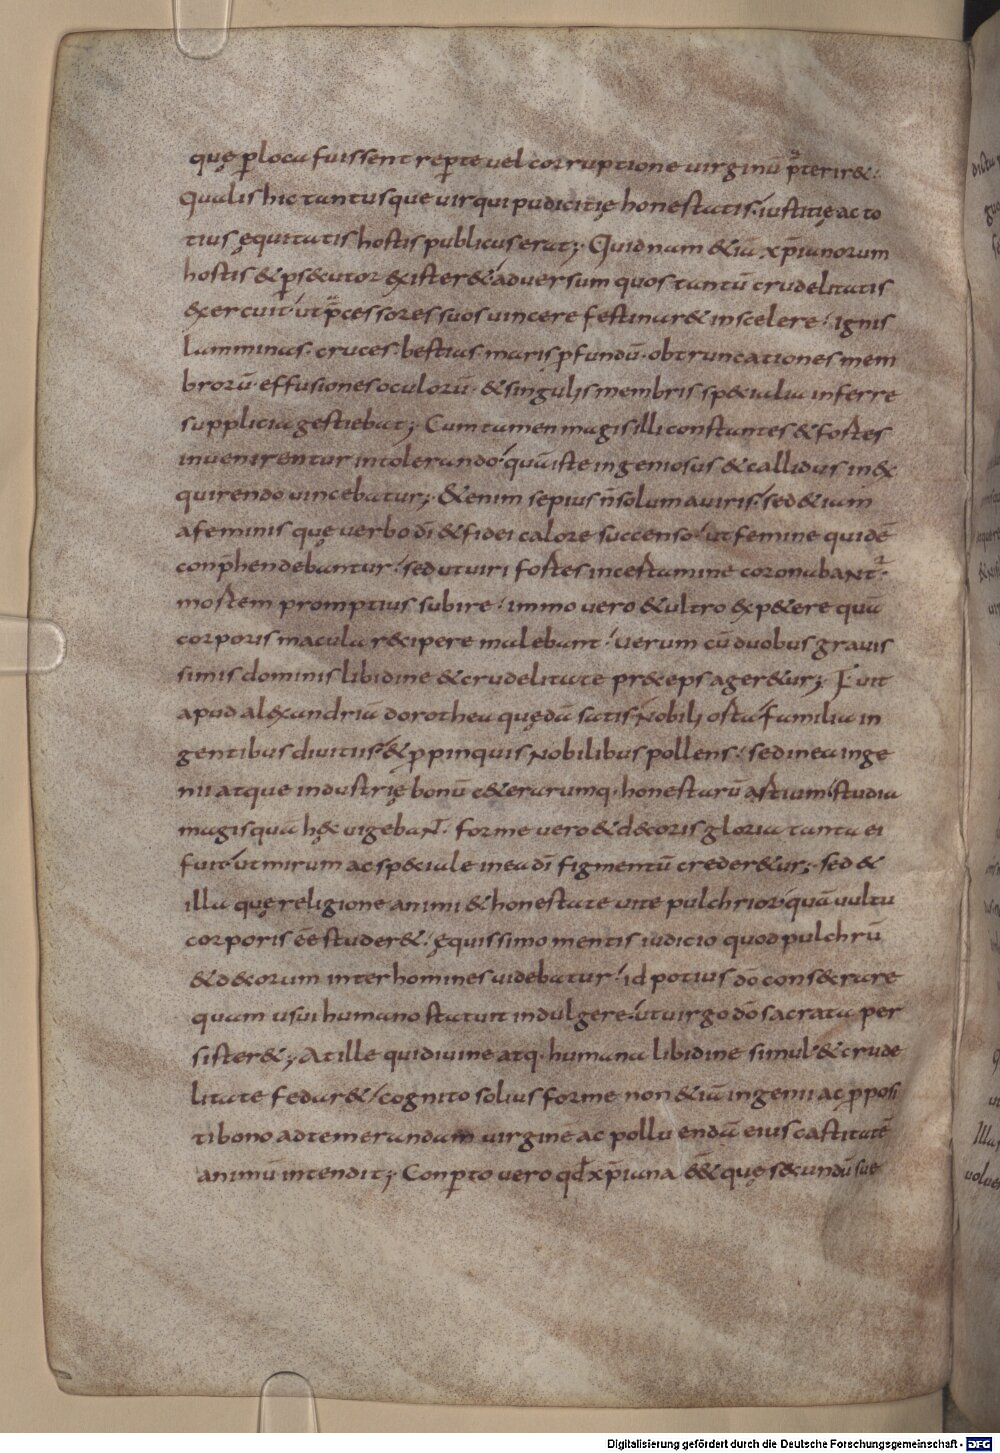 quę p̲loca fuissent rep̲te vel corruptione uirginū p̄terir&.
Qualis hic tantusque uir qui pudicitię honestatis. iustitię ac to
tius ęquitatis hostis publicus erat; Quid nam &iā xp̄ianorum
hostis & p̲s&utor exister& aduersum quos tantū crudelitatis
exercuit. ut p̄cessores suos uincere festinar& in scelere. ignis
lamminas. cruces. bestias. maris p̲fundū. obtruncationes mem
brorū. effusiones oculorū. & singulis membris sp&ialia inferre
supplicia gestiebat; Cum tamen magis illi constantes & fortes
inuenirentur in tolerando. quā iste ingeniosus & callidus in ex
quirendo uincebatur; &enim sepius n̄ solum a uiris. sed &iam
a feminis quę uerbo dī & fidei calore succenso. ut femine quidē
conp̄hendebantur. sed ut uiri fortes in certamine coronabaNtur.
mortem promptius subire. immo uero & ultro exp&ere quā
corporis macula recipere malebant. Verum cū duobus grauis
simis dominis libidine & crudelitate pr&eps ager&ur; Fuit
apud alexandriā dorothea quędā satis Nobili orta familia in
gentibus diuitiis. & p̲pinquis Nobilibus pollens. sed in ea inge
nii atque industrię bonū c&erarumq. honestarū artium studia
magis quā hęc uigebaNt. forme uero & decoris gloria tanta ei
fuit. ut mirum ac sp&iale in ea dī figmentū creder&ur; sed &
illa quę religione animi & honestate uite pulchrior. quā uultu
corporis eē studer&. ęquissimo mentis iudicio quod pulchrū
& decorum inter homines uidebatur. id potius dō consecrare
quam usui humano statuit indulgere. ut uirgo dō sacrata per
sister&; At ille qui diuine atq. humana libidine simul & crude
litate fedar& cognito solius forme non &iā ingenii ac p̲posi
ti bono ad temerandam uirginē ac polluendā eius castitatē
animū intendit; Conp̲to uero qd̄ xp̄iana eē& quę secundū sue